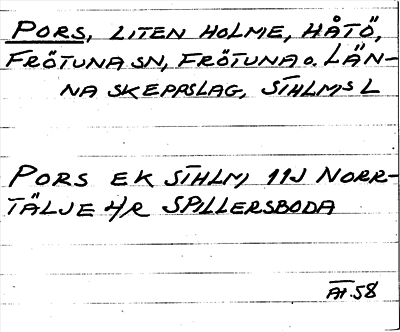 PORS, LITEN HOLME, HÅTÖ,
FRÖTUNA SN, FRÖTUNA O. LÄN-
NA SKEPPSLAG, STHLMS L
PORS EK STHLM, 11J NORR-
TÄLJE 4/R SPILLERSBODA
AI 58